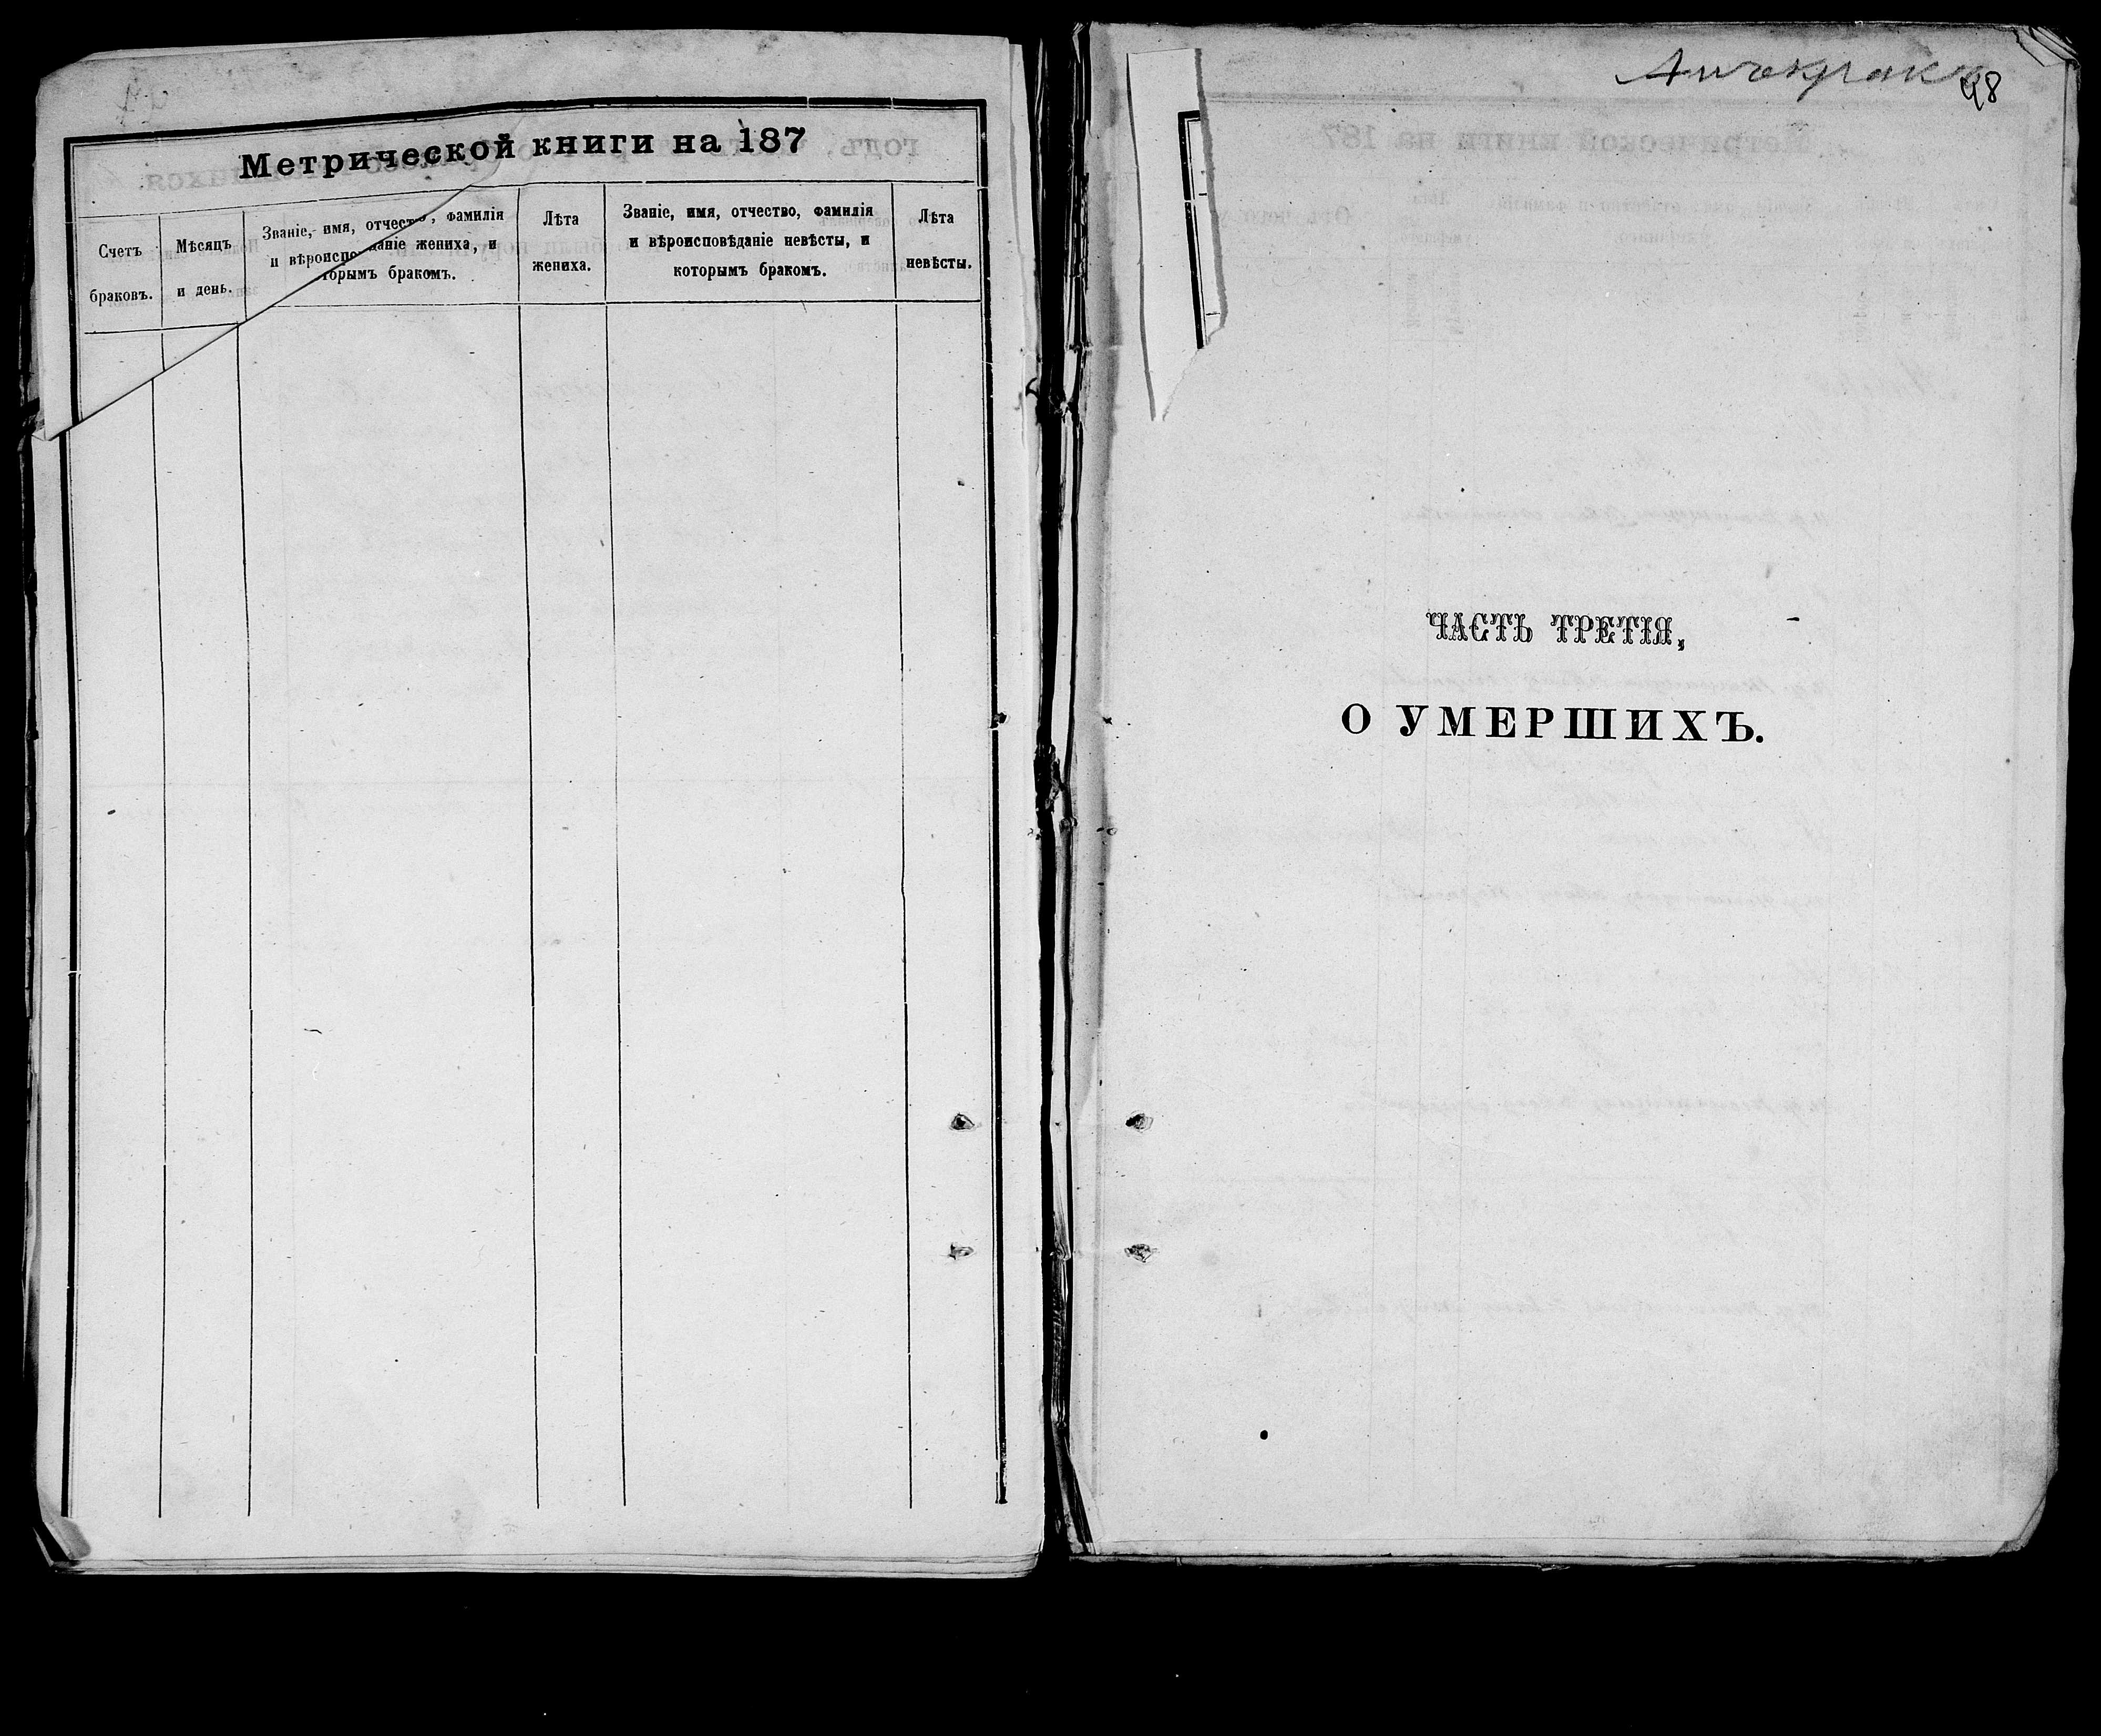 Метрической книги на 187
Счетъ браковъ.
Мѣсяцъ и день.
Званіе, имя, отчество, фамилія
и вѣроиспо даніе жениха, и
торымъ бракомъ.
Лѣта
жениха.
Званіе, имя, отчество, фамилія
и вѣроисповѣданіе невѣсты, и
которымъ бракомъ.
Лѣта
невѣсты.
48
ЧАСТЬ ТРЕТІЯ,
О УМЕРШИХЪ.